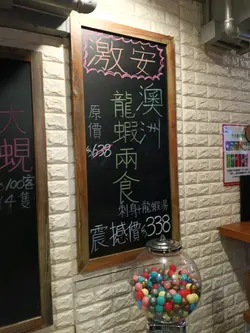 激安
澳洲
龍蝦兩食
原價
$638
刺身+龍蝦湯
震撼價$338
大蜆